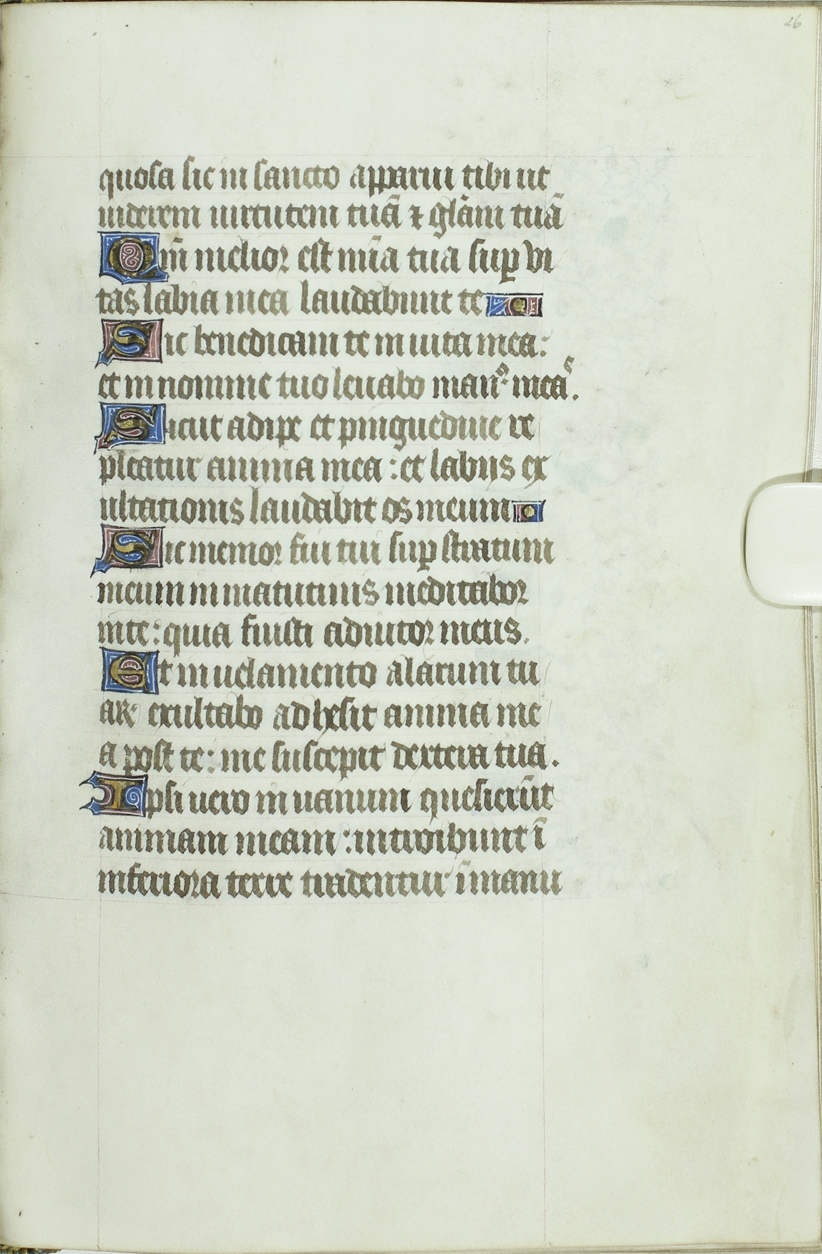 26
quosa sic in sancto apparui tibi ut
uiderem uirtutem tuā ⁊ glām tuā
Qm̄ melior est mīa tua suꝑ vi
tas labia mea laudabunt te
Sic benedicam te in uita mea:
et in nomine tuo leuabo manꝰ meaˢ.
Sicut adipe et pinguedine re
pleatur anima mea : et labiis ex
ultationis laudabit os meum
Sic memor fui tui suꝑ stratum
meum in matutinis meditabor
in te : quia fuisti adiutor meus.
Et in uelamento alarum tu
arꝝ exultabo adhesit anima me
a post te : me suscepit dextera tua.
Ipsi uero in uanum quesierūt
animam meam : introibunt ī
inferiora terre tradentur ī manu